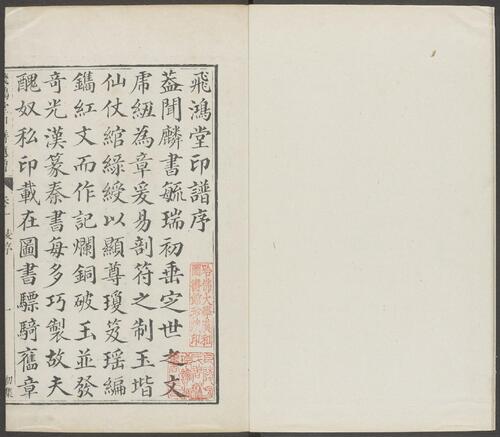 飛鴻堂印譜序
蓋聞麟書毓瑞初垂定世之文
帍紐為章爰易剖符之制玉堦
仙仗綰綠綬以顯尊瓊笈瑶編
鐫紅文而作記爛銅破玉並發
奇光漢篆秦書每多巧製故夫
醜奴私印載在圖書驃騎舊章
初集
哈佛大學漢和
圖書館珍藏印